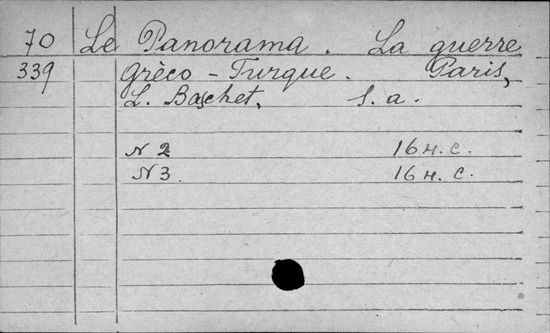 70 Le Panorama. La guerre
339 grèco-Turque. Paris,
L. Baschet, s.a.
N 2 16 н. с.
N 3 16 н. с.